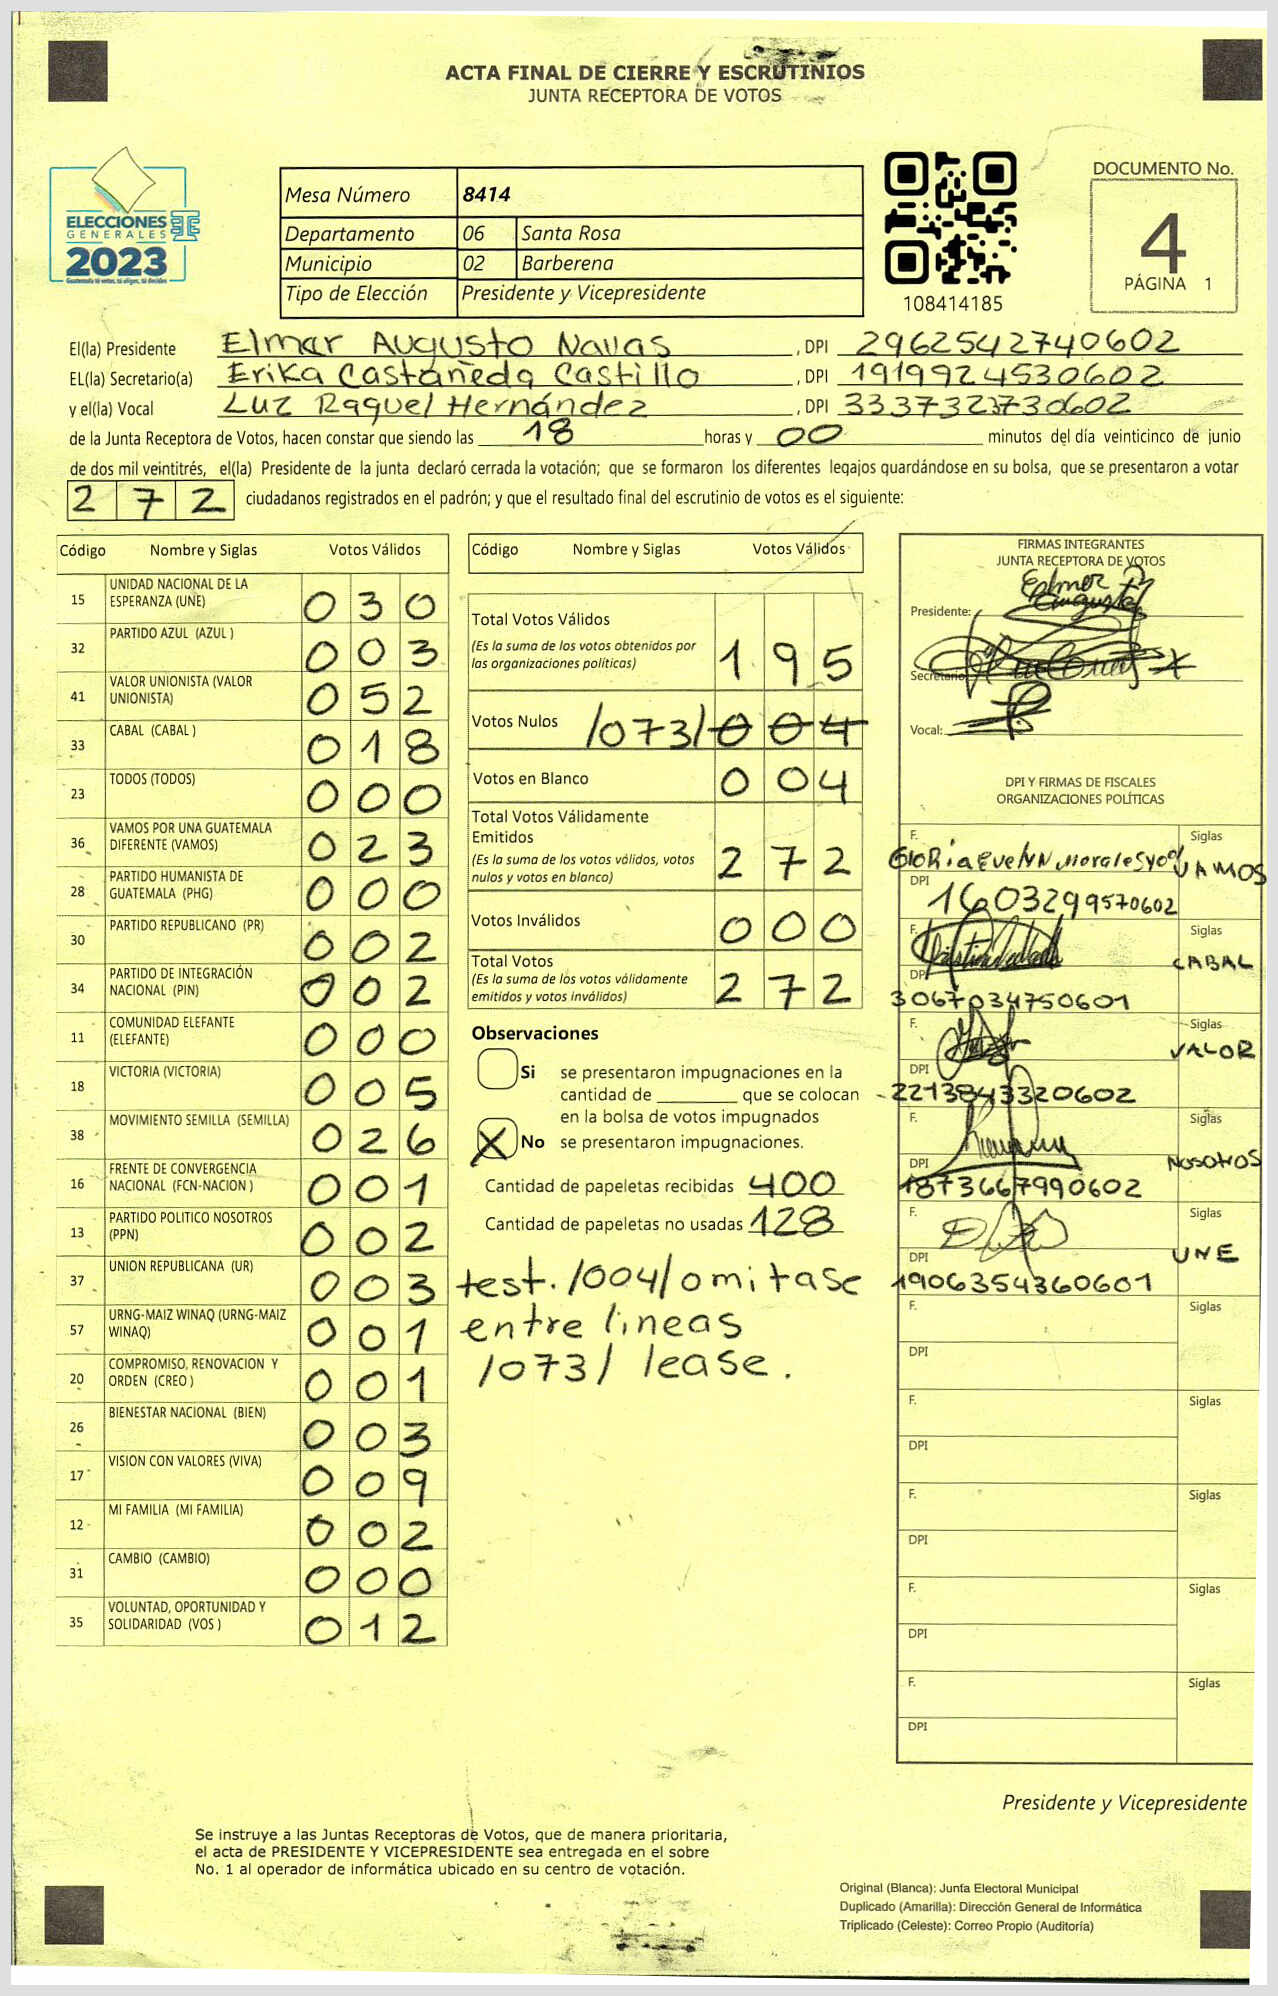 ACTA FINAL DE CIERRE Y ESCRUTINIOS
JUNTA RECEPTORA DE VOTOS
ELECCIONES
GENERALES
2023
Guatemala tú votas, tú eliges, tú decides
Mesa Número 8414
Departamento 06 Santa Rosa
Municipio 02 Barberena
Tipo de Elección Presidente y Vicepresidente
108414185
DOCUMENTO No.
4
PÁGINA 1
El(la) Presidente Elmar Augusto Navas, DPI 2962542740602
EL(la) Secretario(a) Erika Castañeda Castillo, DPI 1919924530602
y el(la) Vocal Luz Raquel Hernández, DPI 3337323730602
de la Junta Receptora de Votos, hacen constar que siendo las 18 horas y 00 minutos del día veinticinco de junio
de dos mil veintitrés, el(la) Presidente de la junta declaró cerrada la votación; que se formaron los diferentes legajos guardándose en su bolsa, que se presentaron a votar
272 ciudadanos registrados en el padrón; y que el resultado final del escrutinio de votos es el siguiente:
Código Nombre y Siglas Votos Válidos
15 UNIDAD NACIONAL DE LA ESPERANZA (UNE) 030
32 PARTIDO AZUL (AZUL ) 003
41 VALOR UNIONISTA (VALOR UNIONISTA) 052
33 CABAL (CABAL ) 018
23 TODOS (TODOS) 000
36 VAMOS POR UNA GUATEMALA DIFERENTE (VAMOS) 023
28 PARTIDO HUMANISTA DE GUATEMALA (PHG) 000
30 PARTIDO REPUBLICANO (PR) 002
34 PARTIDO DE INTEGRACIÓN NACIONAL (PIN) 002
11 COMUNIDAD ELEFANTE (ELEFANTE) 000
18 VICTORIA (VICTORIA) 005
38 MOVIMIENTO SEMILLA (SEMILLA) 026
16 FRENTE DE CONVERGENCIA NACIONAL (FCN-NACION ) 001
13 PARTIDO POLITICO NOSOTROS (PPN) 002
37 UNION REPUBLICANA (UR) 003
57 URNG-MAIZ WINAQ (URNG-MAIZ WINAQ) 001
20 COMPROMISO, RENOVACION Y ORDEN (CREO ) 001
26 BIENESTAR NACIONAL (BIEN) 003
17 VISION CON VALORES (VIVA) 009
12 MI FAMILIA (MI FAMILIA) 002
31 CAMBIO (CAMBIO) 000
35 VOLUNTAD, OPORTUNIDAD Y SOLIDARIDAD (VOS ) 012
Código Nombre y Siglas Votos Válidos
Total Votos Válidos
(Es la suma de los votos obtenidos por
las organizaciones políticas) 195
Votos Nulos /073/ 004
Votos en Blanco 004
Total Votos Válidamente
Emitidos
(Es la suma de los votos válidos, votos
nulos y votos en blanco) 272
Votos Inválidos 000
Total Votos
(Es la suma de los votos válidamente
emitidos y votos inválidos) 272
Observaciones
Si se presentaron impugnaciones en la
cantidad de ________ que se colocan
en la bolsa de votos impugnados
X No se presentaron impugnaciones.
Cantidad de papeletas recibidas 400
Cantidad de papeletas no usadas 128
test. /004/ omitase
entre lineas
/073/ lease.
FIRMAS INTEGRANTES
JUNTA RECEPTORA DE VOTOS
Presidente: Elmer Augusto
Secretario
Vocal:
DPI Y FIRMAS DE FISCALES
ORGANIZACIONES POLÍTICAS
F. Siglas
Gloria Evelyn Morales VAMOS
DPI
1603299570602
F. Siglas
CABAL
DPI
3067034750601
F. Siglas
VALOR
DPI
2213843320602
F. Siglas
NOSOTROS
DPI
1873667990602
F. Siglas
UNE
DPI
1906354360601
F. Siglas
DPI
F. Siglas
DPI
F. Siglas
DPI
F. Siglas
DPI
F. Siglas
DPI
Presidente y Vicepresidente
Se instruye a las Juntas Receptoras de Votos, que de manera prioritaria,
el acta de PRESIDENTE Y VICEPRESIDENTE sea entregada en el sobre
No. 1 al operador de informática ubicado en su centro de votación.
Original (Blanca): Junta Electoral Municipal
Duplicado (Amarilla): Dirección General de Informática
Triplicado (Celeste): Correo Propio (Auditoría)